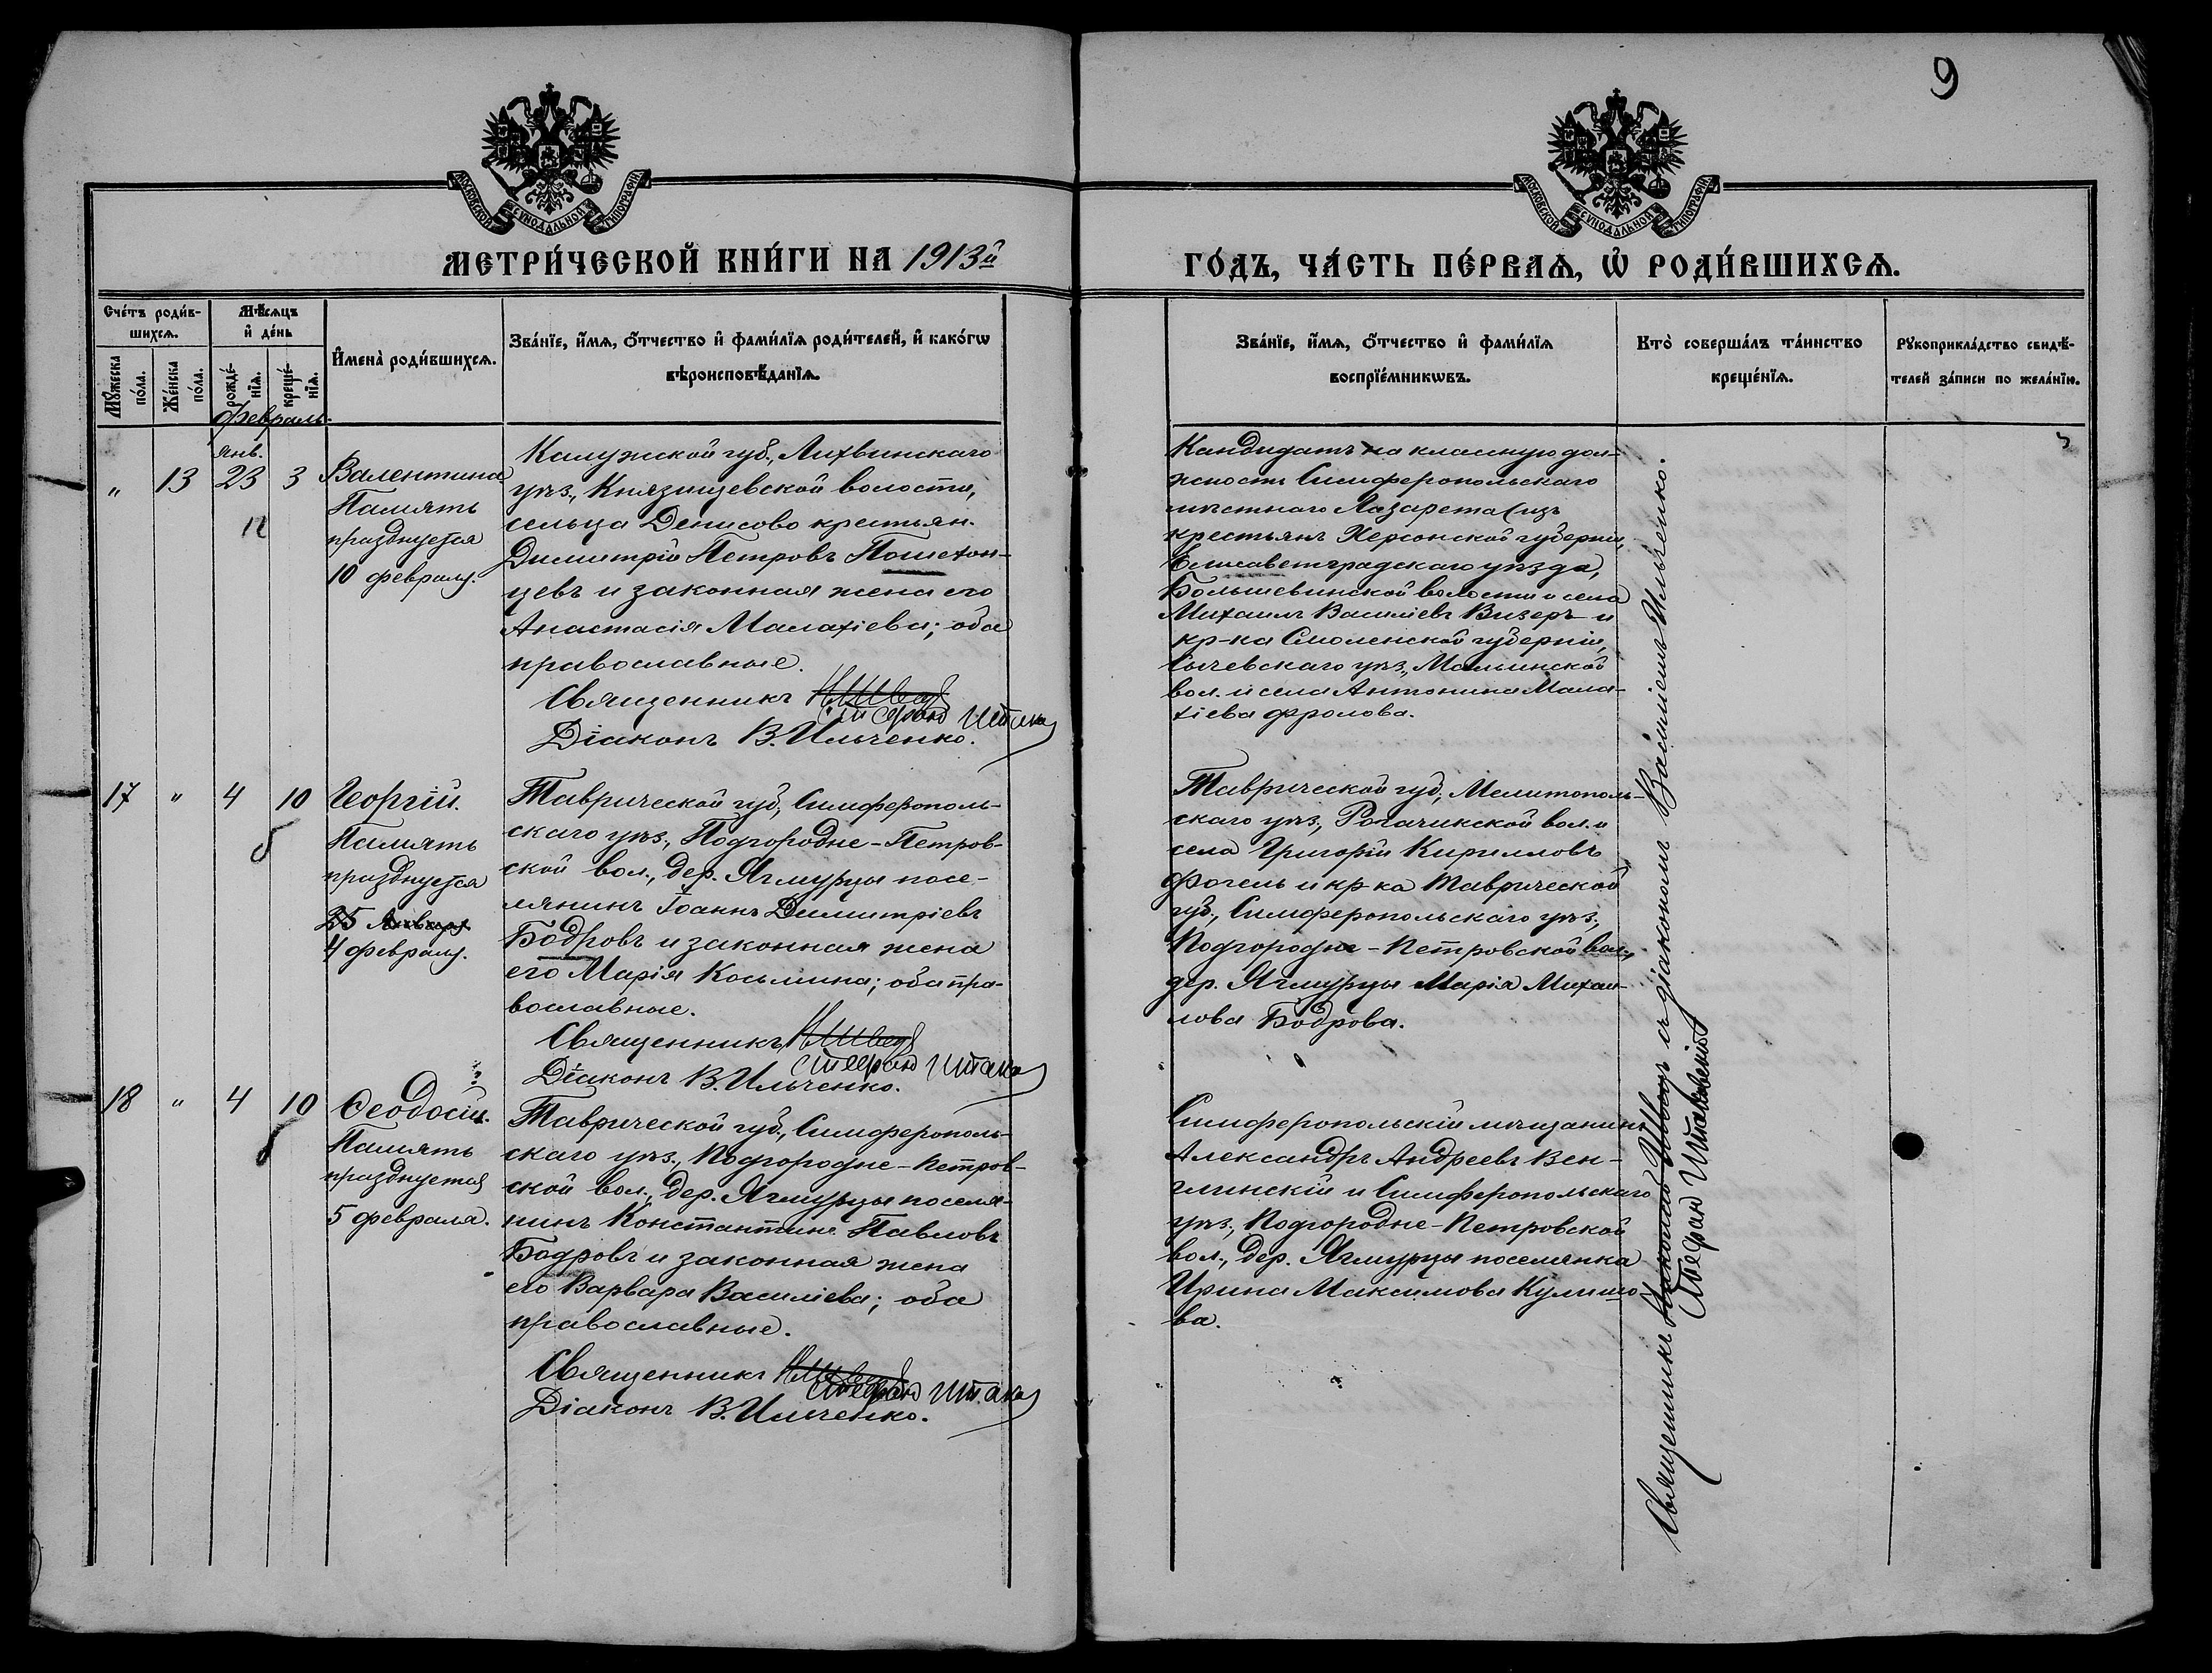 9
МОСКОВСКОЙ СѴНОДАЛЬНОЙ ТИПОГРАФІИ
МОСКОВСКОЙ СѴНОДАЛЬНОЙ ТИПОГРАФІИ
МЕТРИ́ЧЕСКОЙ КНИ́ГИ НА 1913й
ГО́ДЪ, ЧА́СТЬ ПЕ́РВАѦ, Ѡ҆ РОДИ́ВШИХСѦ.
Сче́тъ роди́в-
шихсѧ.
Мѣ́сяцъ
и҆ де́нь
Мꙋ́жеска
по́ла.
Же́нска
по́ла.
рожде́-
нїѧ.
креще́-
нїѧ.
И҆мена̀ роди́вшихсѧ.
Зва́нїе, и҆́мѧ, ѻ҆́тчество и҆ фамѝлїѧ роди́телей, и҆ како́гѡ
вѣроисповѣ́данїѧ.
Зва́нїе, и҆́мѧ, ѻ҆́тчество и҆ фамѝлїѧ
воспрїе́мникѡвъ.
Кто̀ соверша́лъ та́инство
креще́нїѧ.
Рꙋкоприкла́дство свидѣ́-
телей за́писи по жела́нїю.
Февраль
янв.
" 13 23 3
12
Валентина
Память
празднуется
10 февраля.
Калужской губ., Лихвинскаго
уѣз., Князищевской волости,
сельца Денисово крестьян.
Димитрій Петровъ Пошехон-
цевъ и законная жена его
Анастасія Малахіева; оба
православные.
Священникъ Н. Швецъ
Стефанъ Штака
Діаконъ В. Ильченко.
Кандидатъ на классную дол-
жность Симферопольскаго
мѣстнаго Лазарета (изъ
крестьянъ Херсонской губерніи,
Елисаветградскаго уѣзда,
волости и села
Михаилъ Василіевъ Визеръ и
кр-ка Смоленской губерніи,
Сычевскаго уѣз.,
вол. и села Антонина Мала-
хіева Фролова.
17 " 4 10
Георгій.
Память
празднуется
25 Января
4 февраля.
Таврической губ., Симферополь-
скаго уѣз., Подгородне-Петров-
ской вол., дер. Ягмурцы посе-
лянинъ Іоаннъ Димитріевъ
Бодровъ и законная жена
его Марія Косьмина; оба пра-
вославные.
Священникъ Н. Швецъ
Стефанъ Штака
Діаконъ В. Ильченко.
Таврической губ., Мелитополь-
скаго уѣз., Рогачикской вол. и
села Григорій Кирилловъ
Фогель и кр-ка Таврической
губ., Симферопольскаго уѣз.,
Подгородне-Петровской вол.,
дер. Ягмурцы Марія Михаи-
лова Бодрова.
18 " 4 10
Ѳеодосій.
Память
празднуется
5 февраля.
Таврической губ., Симферополь-
скаго уѣз., Подгородне-Петров-
ской вол., дер. Ягмурцы поселя-
нинъ Константинъ Павловъ
Бодровъ и законная жена
его Варвара Василіева; оба
православные.
Священникъ Н. Швецъ
Стефанъ Штака
Діаконъ В. Ильченко.
Симферопольскій мѣщанинъ
Александръ Андреевъ Вен-
глинскій и Симферопольскаго
уѣз., Подгородне-Петровской
вол., дер. Ягмурцы поселянка
Ирина Максимова Кулишо-
ва.
Священникъ Николай Швецъ съ діакономъ Василіемъ Ильченко.
Стефанъ Штаковскій